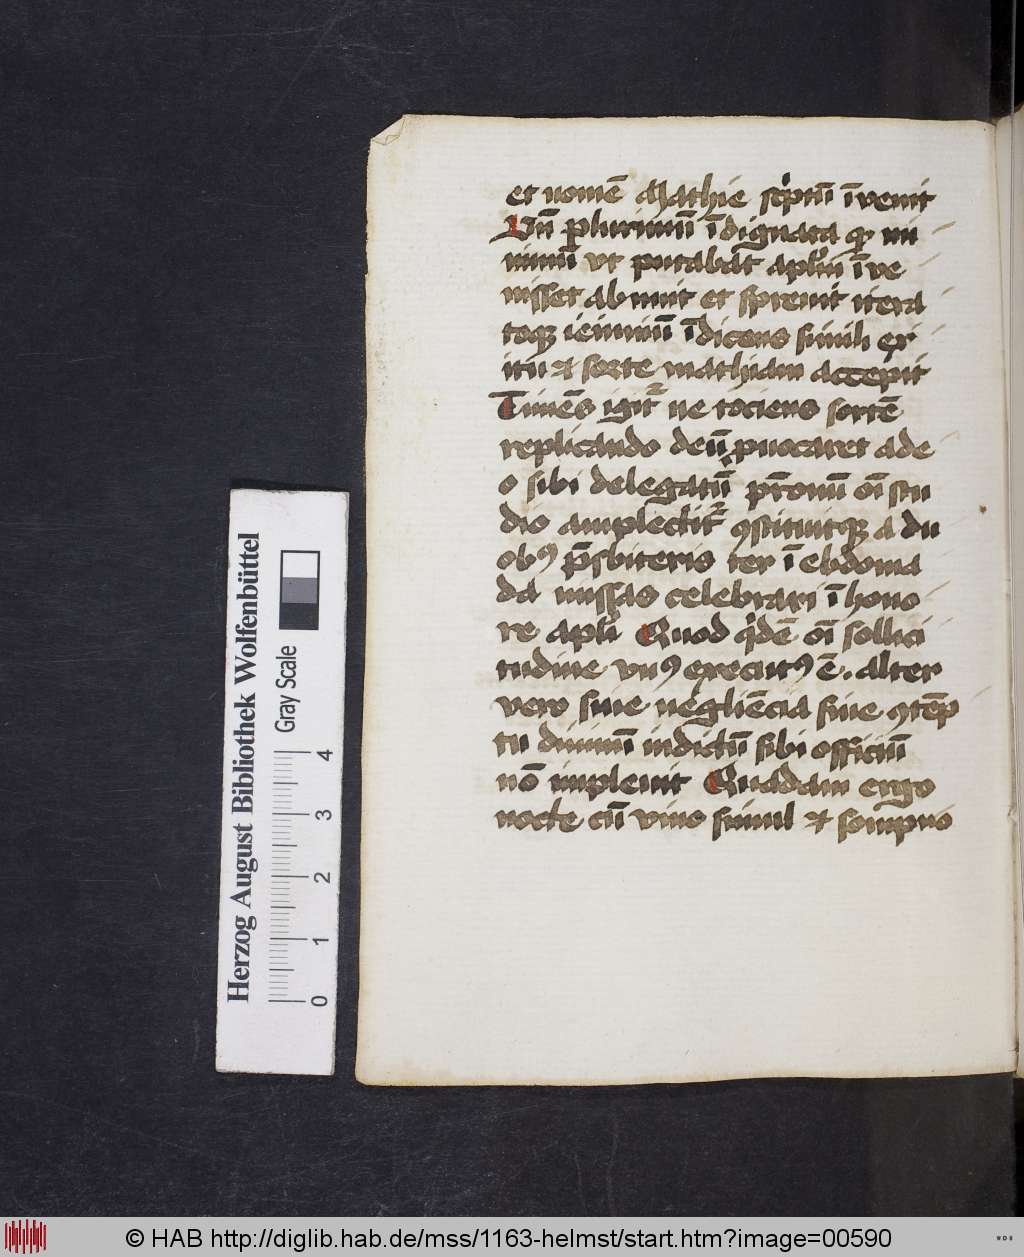 et nomē Mathie sc͛ptū īvenit
Vn̄ plurimū īdignata qr mi
nimū vt putabāt aplm̄ īve
nisset abnuit et spreuit itera
toqꝫ ieiuniū īdicens simili exi
itu et sorte mathiam accepit
Timēs igit᷑ ne tociens sortē
replicando deū puocaret ade
o sibi delegatū pr̄onū oī stu
dio amplectit᷑ ꝯstituitqꝫ a du
obꝰ p̄sbiteris ter ī ebdoma
da missas celebrari ī hono
re apli Quod qͥdē oī sollici
tudine vnꝰ executꝰ ē . alter
vero siue negliēcia siue ꝯtēp
tu diuinū indictū sibi officiū
nō impleuit Quadam ergo
nocte cū vino simul et sompno
Herzog August Bibliothek Wolfenbüttel
Gray Scale
0 1 2 3 4
© HAB http://diglib.hab.de/mss/1163-helmst/start.htm?image=00590